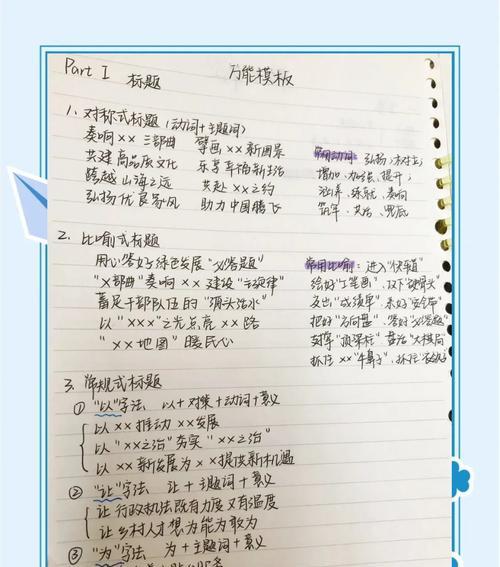 Part I 标题 万能模板
1. 对称式标题 (动词+主题词)
奏响××三部曲 擘画××新图景
共建高品质文化 乐享幸福新生活
跨越山海之远 共赴××之约
弘扬优良家风 助力中国腾飞
常用动词: 弘扬、
增加、加强、提升;
涵养、练就、奏响
筑牢、共治、兜底
2. 比喻式标题
用心答好绿色发展“必答题”
“×部曲”奏响××建设“主旋律”
蓄足干部队伍的“源头活水”
以“×××”之光点亮××路
“××地图”暖民心
常用比喻: 进入“快车道”
绘好“工笔画”、
交出“成绩单”、系好“安全带”
把好“方向盘”、答好“必答题”
支撑“顶梁柱”、“大棋局”
抓住××“牛鼻子”、
3. 常规式标题
① “以”字法 以+对策+动词+意义
以××推动××发展
以“××之治”夯实“××之治”
以××新发展为××提供新机遇
② “让”字法 让+主题词+意义
让行政执法既有力度又有温度
让乡村人才想为能为敢为
③ “为”字法 为+主题词+意义